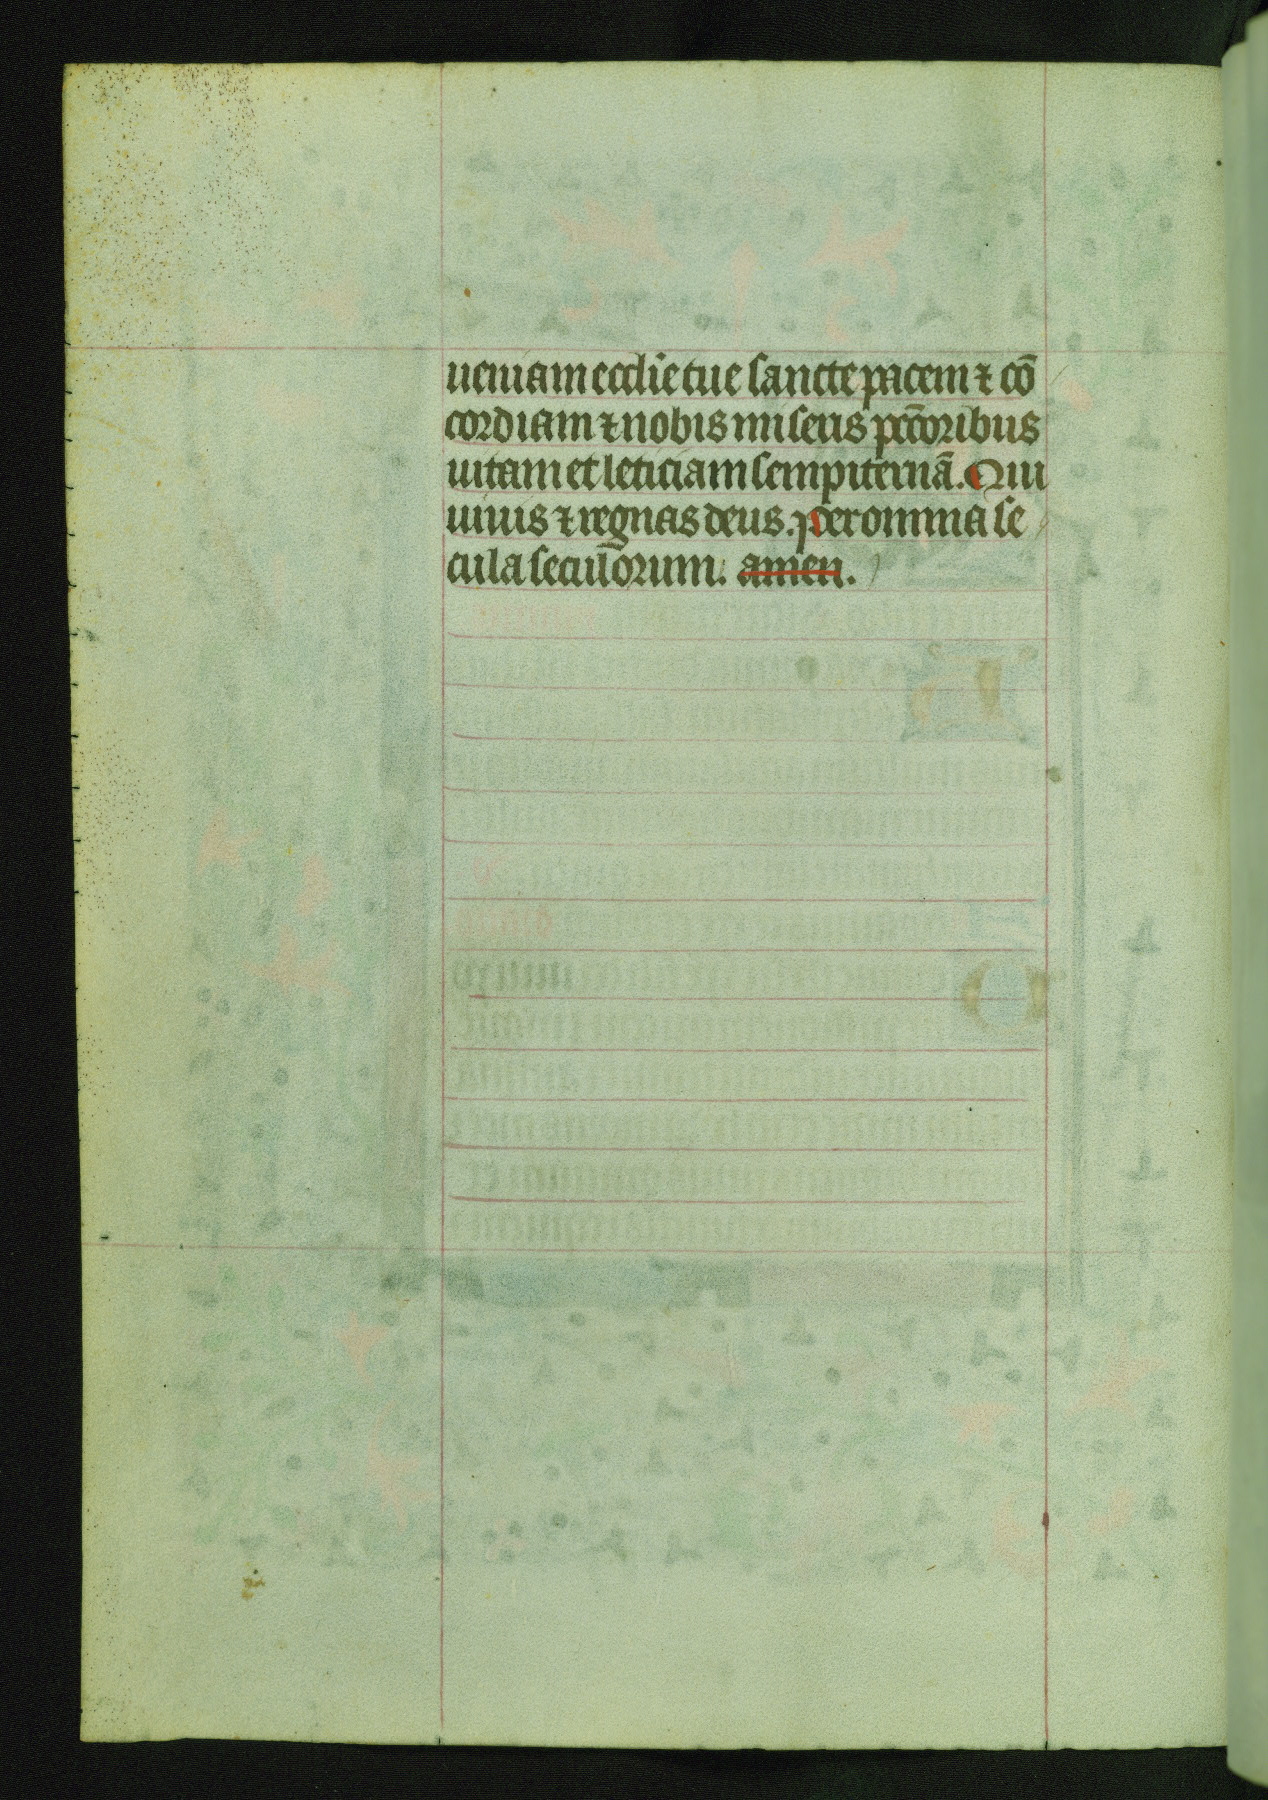 ueniam ecclīe tue sancte pacem ⁊ cō
cordiam ⁊ nobis miseris pc̄coribus
uitam et leticiam sempiternā. Qui
uiuis ⁊ regnas deus. per omnia se
cula seculorum. amen.